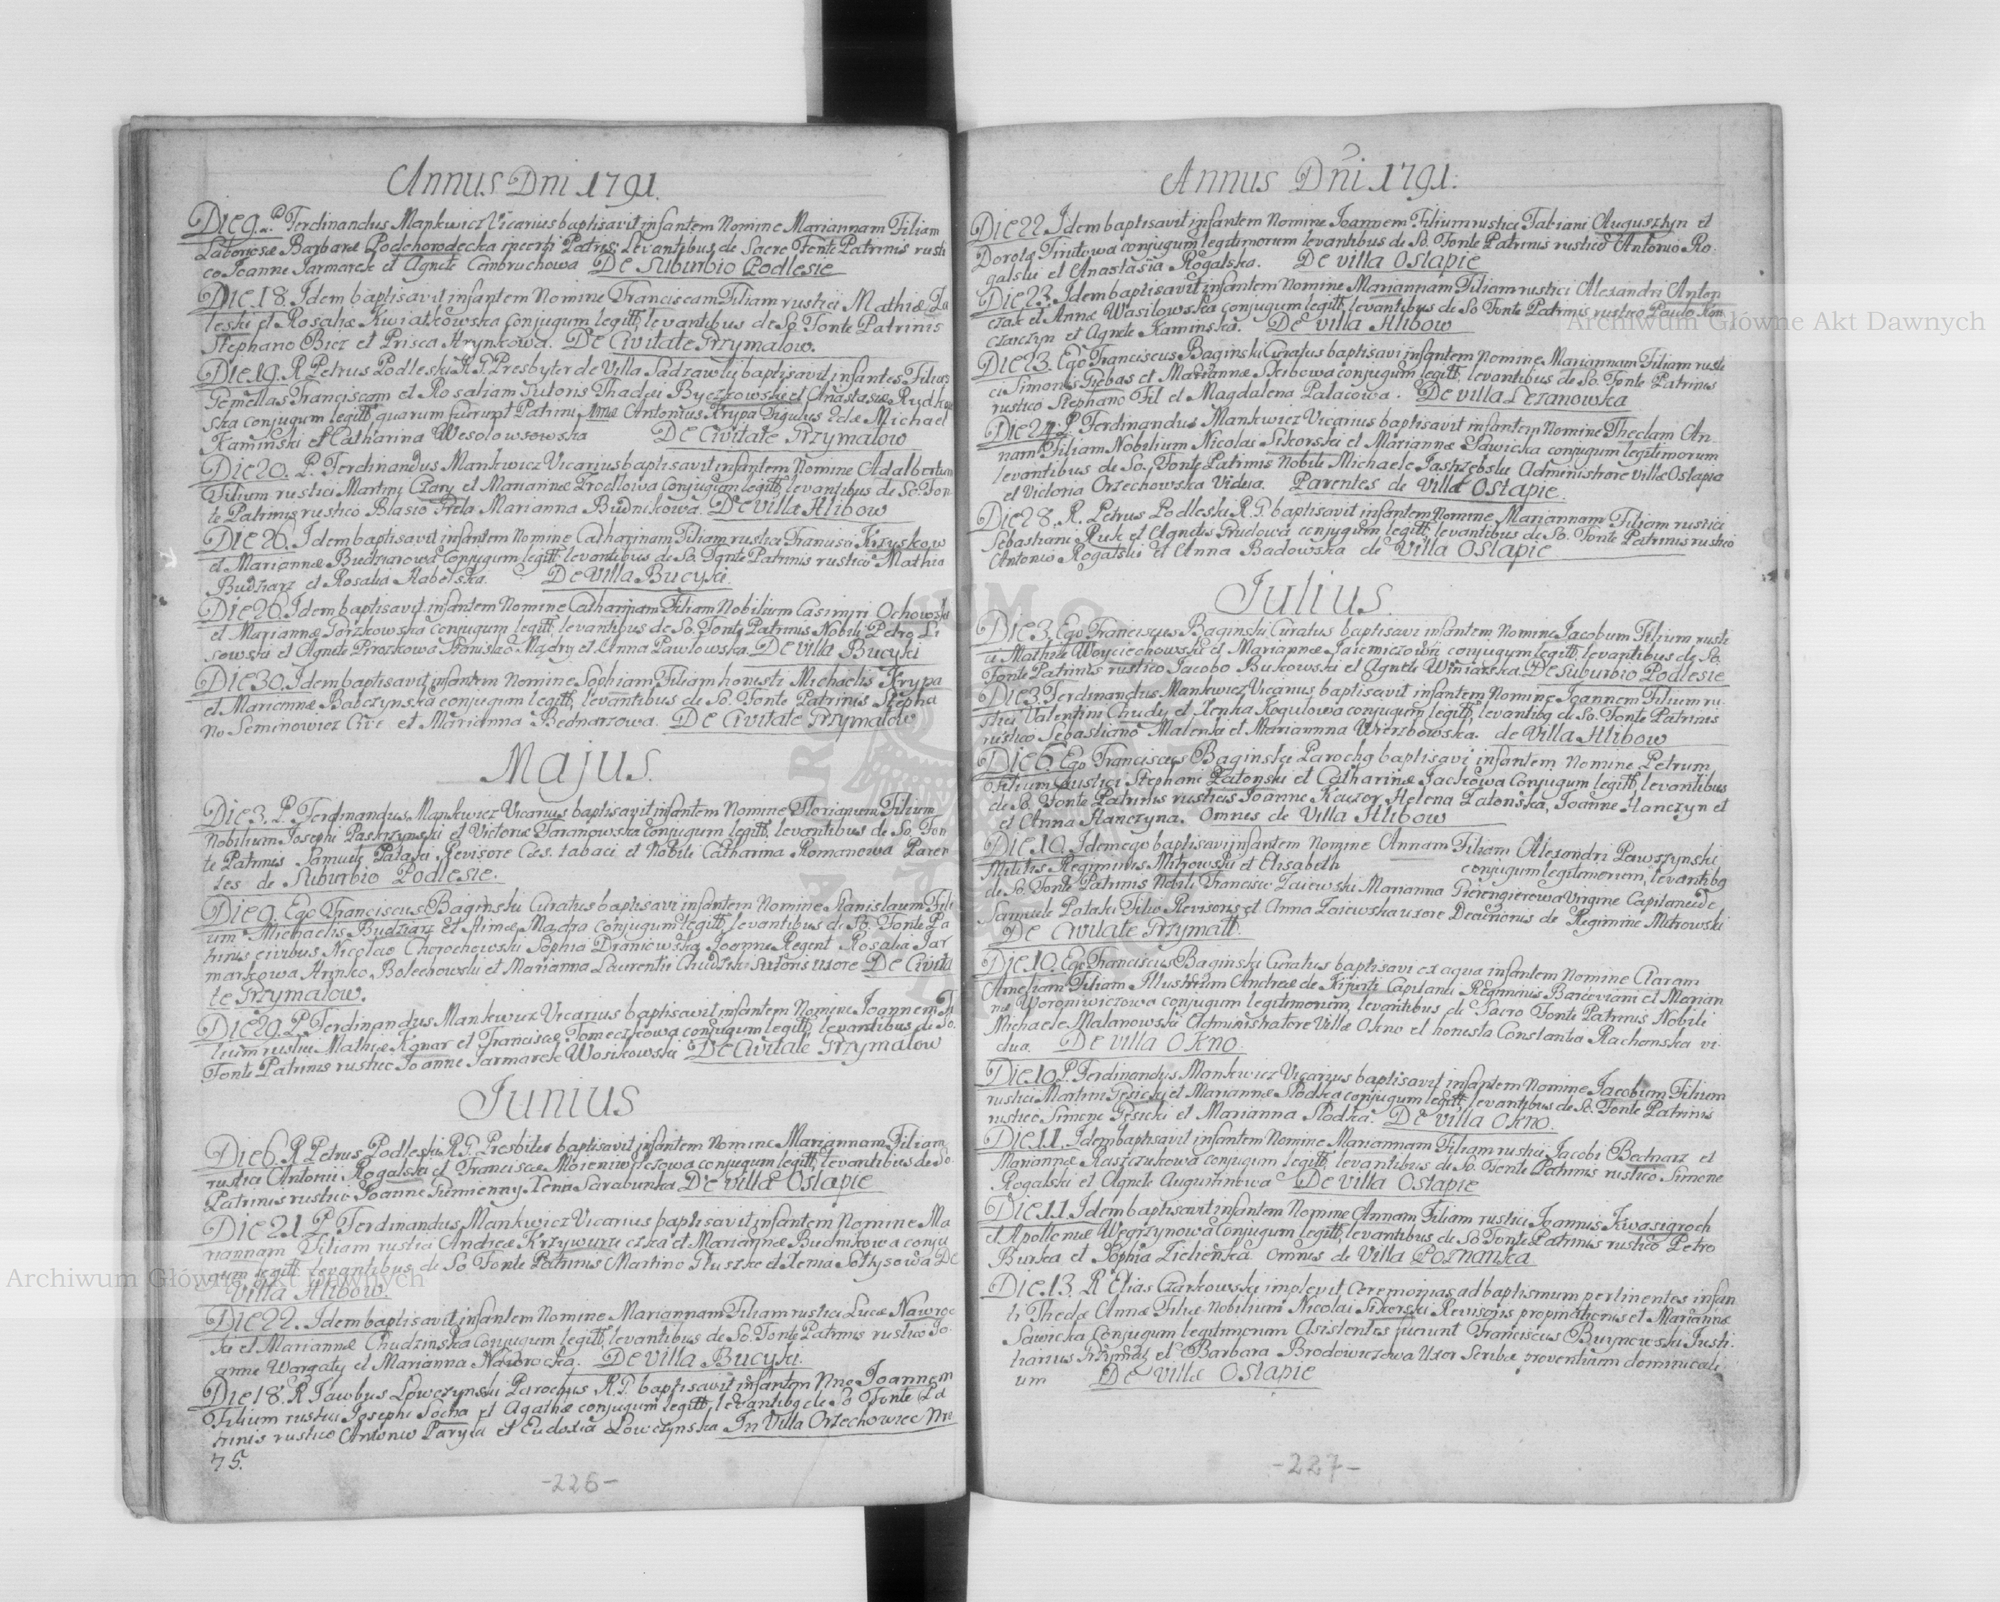 Annus Dni 1791.
Die 9. P. Ferdinandus Mankwicz Vicarius baptisavit infantem Nomine Mariannam Filiam
Laboriosæ Barbaræ Podchorodecka incerti Patris, Levantibus de Sacro Fonte Patrinis rusti
co Joanne Jarmarek et Agnete Combruchowa De Suburbio Podlesie
Die 18. Idem baptisavit infantem Nomine Franciscam Filiam rustici Mathiæ Za
leski et Rosaliæ Kwiatkowska Conjugum legitt, levantibus de So. Fonte Patrinis
Stephano Bicz et Prisca Hrynkowa. De Civitate Grzymalow.
Die 19. R Petrus Podleski R.G. Presbyter de Villa Sadzawky baptisavit infantes Filias
Gemellas Franciscam et Rosaliam Sutoris Thadei Byczkowski et Anastasiæ Rydkow
ska conjugum legitt, quarum fuerunt Patrini Imæ Antonius Krypa Figulus 2dæ Michael
Kaminski et Catharina Wesolowsowska De Civitate Grzymalow
Die 20. P. Ferdinandus Mankwicz Vicarius baptisavit infantem Nomine Adalbertum
Filium rustici Martini Czary et Mariannæ Srodlowa Conjugum legitt, levantibus de So. Fon
te Patrinis rustico Blasio Frela Marianna Budnikowa. De Villa Hlibow
Die 26. Idem baptisavit infantem Nomine Catharinam Filiam rustici Francisci Kryskow
et Mariannæ Budziarowa Conjugum legitt, levantibus de So. Fonte Patrinis rustico Mathia
Budziarz et Rosalia Kobelska. De Villa Bucyki.
Die 26. Idem baptisavit infantem Nomine Catharinam Filiam Nobilium Casimiri Ochowski
et Mariannæ Gorzkowska Conjugum legitt, levantibus de So. Fonte Patrinis Nobili Petro Li
sowski et Agnete Pirozkowa Stanislao Mądry et Anna Pawlowska. De Villa Bucyki
Die 30. Idem baptisavit infantem Nomine Sophiam Filiam honesti Michaelis Krypa
et Mariannæ Babczynska conjugum legitt, levantibus de So. Fonte Patrinis Stepha
no Seminowicz Cive et Marianna Bednarzowa. De Civitate Grzymalow
Majus.
Die 3. P. Ferdinandus Mankwicz Vicarius baptisavit infantem Nomine Florianum Filium
Nobilium Josephi Paskrzynski et Victoriæ Baranowska conjugum legitt, levantibus de So. Fon
te Patrinis Samuele Pataki Revisore Cæs. tabaci et Nobili Catharina Romanowa Paren
tes de Suburbio Podlesie.
Die 9. Ego Franciscus Baginski Curatus baptisavi infantem Nomine Stanislaum Fili
um Michaelis Budziarz et Annæ Mądra conjugum legitt, levantibus de So. Fonte Pa
trinis civibus Nicolao Chorochowski Sophia Draniowska Joanne Regent Rosalia Jar
markowa Hrynko Bolechowski et Marianna Laurentii Chudziki sutoris uxore De Civita
te Grzymalow.
Die 29. P. Ferdinandus Mankwicz Vicarius baptisavit infantem Nomine Joannem Fi
lium rustici Mathiæ Konar et Franciscæ Tomeczkowa conjugum legitt, levantibus de So.
Fonte Patrinis rustico Joanne Jarmarek Wosikowski De Civitate Grzymalow
Junius
Die 6. R Petrus Podleski R.G. Presbiter baptisavit infantem Nomine Mariannam Filiam
rustici Antonii Rogalski et Franciscæ conjugum legitt, levantibus de So.
Patrinis rustico Joanne Siemienny Xenia Sarabunka De Villa Ostapie
Die 21. P. Ferdinandus Mankwicz Vicarius baptisavit infantem Nomine Ma
riannam Filiam rustici Andreæ et Mariannæ Budnikowa conju
gum legitt, levantibus de So. Fonte Patrinis Martino Gluszko et Xenia Soltysowa De
Villa Hlibow.
Die 22. Idem baptisavit infantem Nomine Mariannam Filiam rustici Lucæ Nawroc
ki et Mariannæ Chudzinska Conjugum legitt, levantibus de So. Fonte Patrinis rustico Jo
anne Wargaty et Marianna Nawrocka. De Villa Bucyki.
Die 18. R. Jacobus Lowczynski Parochus R.G. baptisavit infantem Nne Joannem
Filium rustici Josephi Socha et Agathæ conjugum legitt, levantibq de So Fonte Pa
trinis rustico Antonio Paryla et Eudoxia Lowczynska In Villa Orzechowiec Nro
75.
-226-
Annus Dni 1791.
Die 22. Idem baptisavit infantem Nomine Joannem Filium rustici Fabiani Augusztyn et
Dorotæ conjugum legitimorum levantibus de So. Fonte Patrinis rustico Antonio Ro
galski et Anastasia Rogalska. De Villa Ostapie
Die 23. Idem baptisavit infantem Nomine Mariannam Filiam rustici Alexandri Anton
czak et Annæ Wasilowska conjugum legitt, levantibus de So Fonte Patrinis rustico Paulo Kon
czarzyn et Agnete Kaminska. De Villa Hlibow
Die 23. Ego Franciscus Baginski Curatus baptisavi infantem Nomine Mariannam Filiam rusti
ci Simonis Grebas et Mariannæ Skibowa conjugum legitt, levantibus de So. Fonte Patrinis
rustico Stephano Fil et Magdalena Palacowa. De Villa Lezanowska
Die 24. P. Ferdinandus Mankwicz Vicarius baptisavit infantem Nomine Theclam An
nam Filiam Nobilium Nicolai Sikorski et Mariannæ Sawicka conjugum legitimorum
levantibus de So. Fonte Patrinis Nobili Michaele Jastrzebski Administrore Villæ Ostapia
et Victoria Orzechowska Vidua. Parentes de Villa Ostapie.
Die 28. R. Petrus Podleski R.G. baptisavit infantem Nomine Mariannam Filiam rustici
Sebastiani Kuk et Agnetis Prudowa conjugum legitt, levantibus de So. Fonte Patrinis rustico
Antonio Rogalski et Anna Badowska de Villa Ostapie
Julius.
Die 3. Ego Franciscus Baginski Curatus baptisavi infantem Nomine Jacobum Filium rusti
ci Mathiæ Woyciechowski et Mariannæ Jaremiczowa conjugum legitt, levantibus de So.
Fonte Patrinis rustico Jacobo Bukowski et Agnete Winiarska. De Suburbio Podlesie
Die 3. Ferdinandus Mankwicz Vicarius baptisavit infantem Nomine Joannem Filium ru
stici Valentini Chudy et Xenka Kogutowa conjugum legitt, levantibq de So. Fonte Patrinis
rustico Sebastiano Malenki et Marianna Wierzbowska. de Villa Hlibow
Die 6. Ego Franciscus Baginski Parochq baptisavi infantem Nomine Petrum
Filium rustici Stephani Patonski et Catharinæ Jackowa Conjugum legitt, levantibus
de So. Fonte Patrinis rusticis Joanne Kaczor, Helena Patonska, Joanne Hanczyn et
et Anna Hanczyna. Omnes de Villa Hlibow
Die 10. Idem ego baptisavi infantem Nomine Annam Filiam Alexandri Pawszynski
Militis Regiminis Mitrowski et Elisabeth conjugum legitimorum, levantibq
de So. Fonte Patrinis Nobili Francisco Zaiewski Marianna Virgine Capitaneide
Samuele Pataki Filio Revisoris et Anna Zaiewska uxore Decurionis de Regimine Mitrowski
De Civitate Grzymall.
Die 10. Ego Franciscus Baginski Curatus baptisavi ex aqua infantem Nomine Claram
Ameliam Filiam Illustrium Andreæ de Capitanei Regiminis Barcoviani et Marian
næ Woroniwiczowa conjugum legitimorum, levantibus de Sacro Fonte Patrinis Nobili
Michaele Malanowski Administratore Villæ Okno et honesta Constantia Rachenska vi
dua. De Villa Okno.
Die 10. P. Ferdinandus Mankwicz Vicarius baptisavit infantem Nomine Jacobum Filium
rustici Martini Gesicki et Mariannæ Slodka conjugum legitt, levantibus de So. Fonte Patrinis
rustico Simone Gesicki et Marianna Slodka. De Villa Okno.
Die 11. Idem baptisavit infantem Nomine Mariannam Filiam rustici Jacobi Bednarz et
Mariannæ Raszczukowa conjugum legitt, levantibus de So. Fonte Patrinis rustico Simone
Rogalski et Agnete Augustinowa De Villa Ostapie
Die 11. Idem baptisavit infantem Nomine Annam Filiam rustici Joannis Kwasigroch
et Apolloniæ Węgrzynowa Conjugum legitt, levantibus de So. Fonte Patrinis rustico Petro
Burka et Sophia Zichenska Omnes de Villa Poznanka
Die 13. R Elias Czarkowski implevit Ceremonias ad baptismum pertinentes infan
ti Theclæ Annæ Filiæ Nobilium Nicolai Sikorski Revisoris propinationis et Mariannæ
Sawicka Conjugum legitimorum Asistentes fuerunt Franciscus Buynowski Justi
tiarius Grzymal et Barbara Brodowiczowa Uxor Scribæ proventuum dominicali
um De Villa Ostapie
-227-
Archiwum Główne Akt Dawnych
Archiwum Główne Akt Dawnych